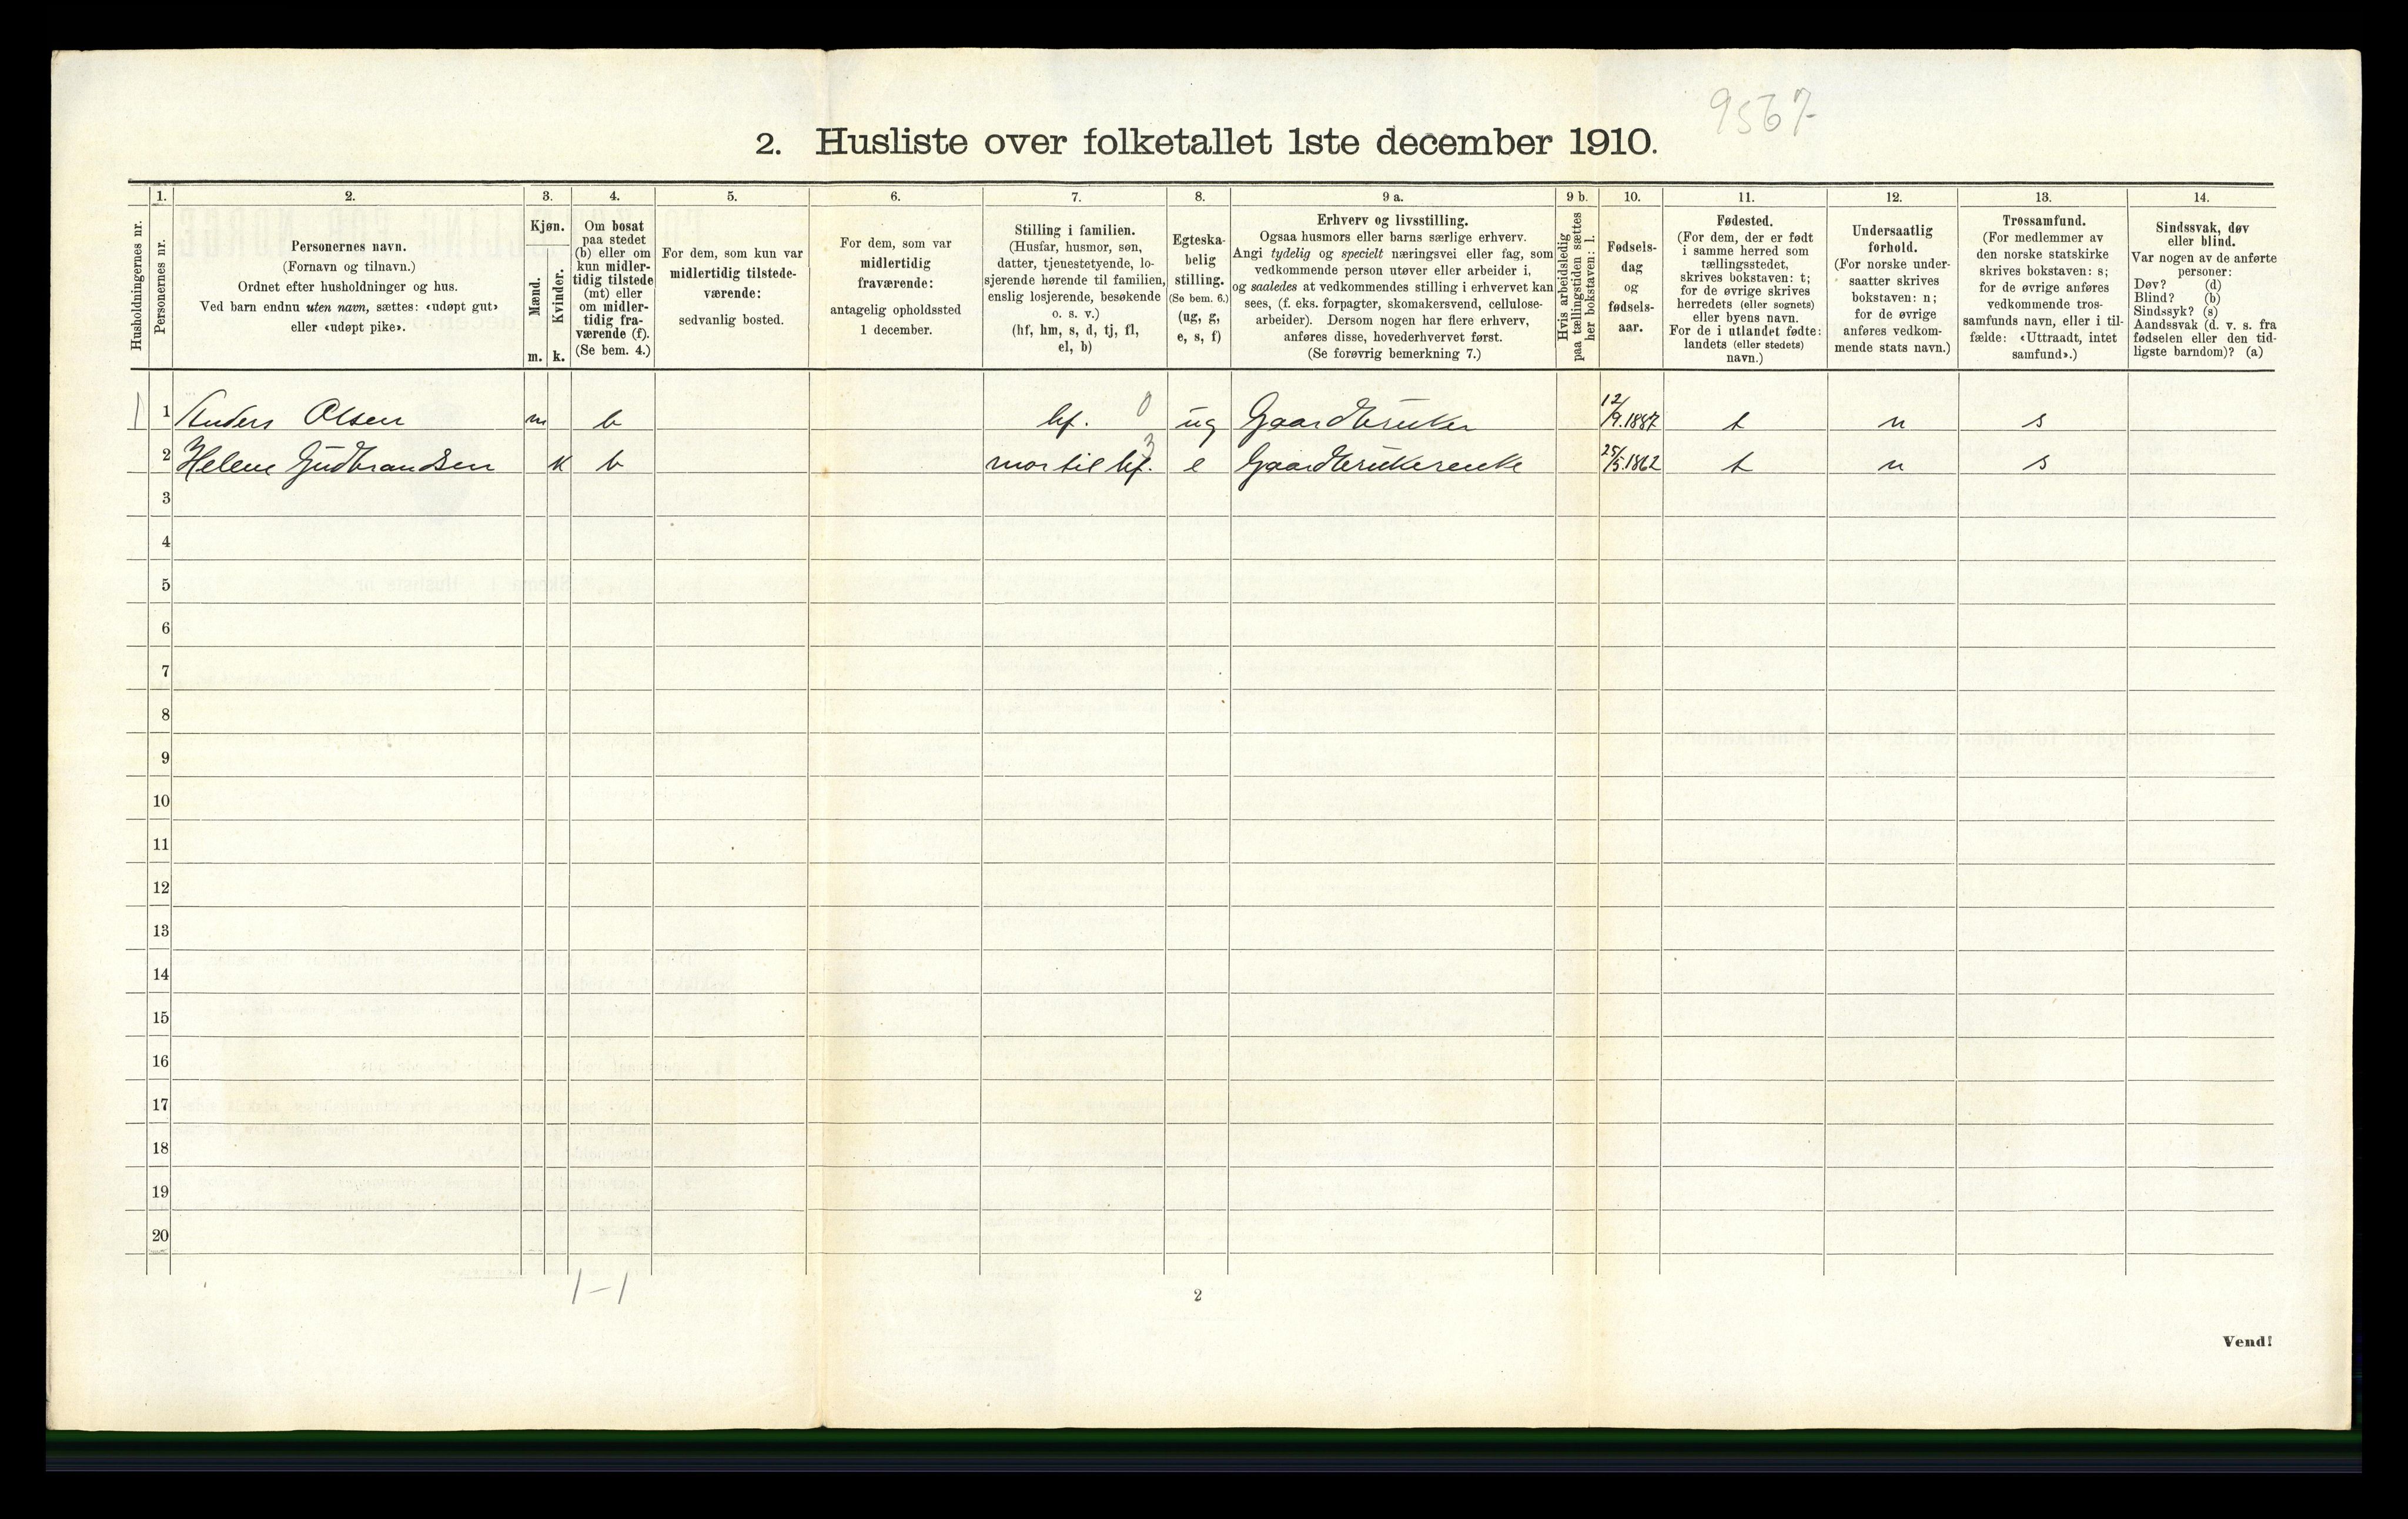 9567
2. Husliste over folketallet 1ste december 1910.
Husholdningernes nr.
1.
Personernes nr.
2.
Personernes navn.
(Fornavn og tilnavn.)
Ordnet efter husholdninger og hus.
Ved barn endnu uten navn, sættes: «udøpt gut»
eller «udøpt pike».
3.
Kjøn.
Mænd.
Kvinder.
m. k.
4.
Om bosat
paa stedet
(b) eller om
kun midler-
tidig tilstede
(mt) eller
om midler-
tidig fra-
værende (f).
(Se bem. 4.)
5.
For dem, som kun var
midlertidig tilstede-
værende:
sedvanlig bosted.
6.
For dem, som var
midlertidig
fraværende:
antagelig opholdssted
1 december.
7.
Stilling i familien.
(Husfar, husmor, søn,
datter, tjenestetyende, lo-
sjerende hørende til familien,
enslig losjerende, besøkende
o. s. v.)
(hf, hm, s, d, tj, fl,
el, b)
8.
Egteska-
belig
stilling.
(Se bem. 6.)
(ug, g,
e, s, f)
9 a.
Erhverv og livsstilling.
Ogsaa husmors eller barns særlige erhverv.
Angi tydelig og specielt næringsvei eller fag, som
vedkommende person utøver eller arbeider i,
og saaledes at vedkommendes stilling i erhvervet kan
sees, (f. eks. forpagter, skomakersvend, cellulose-
arbeider). Dersom nogen har flere erhverv,
anføres disse, hovederhvervet først.
(Se forøvrig bemerkning 7.)
9 b.
Hvis arbeidsledig
paa tællingstiden sættes
her bokstaven: l.
10.
Fødsels-
dag
og
fødsels-
aar.
11.
Fødested.
(For dem, der er født
i samme herred som
tællingsstedet,
skrives bokstaven: t;
for de øvrige skrives
herredets (eller sognets)
eller byens navn.
For de i utlandet fødte:
landets (eller stedets)
navn.)
12.
Undersaatlig
forhold.
(For norske under-
saatter skrives
bokstaven: n;
for de øvrige
anføres vedkom-
mende stats navn.)
13.
Trossamfund.
(For medlemmer av
den norske statskirke
skrives bokstaven: s;
for de øvrige anføres
vedkommende tros-
samfunds navn, eller i til-
fælde: «Uttraadt, intet
samfund».)
14.
Sindssvak, døv
eller blind.
Var nogen av de anførte
personer:
Døv? (d)
Blind? (b)
Sindssyk? (s)
Aandssvak (d. v. s. fra
fødselen eller den tid-
ligste barndom)? (a)
1 1 Anders Olsen m b hf. 0 ug Gaardbruker 12/9.1887 t n s
2 Helene Gudbrandsen k b mor til hf. 3 e Gaardbrukerenke 25/5.1862 t n s
3
4
5
6
7
8
9
10
11
12
13
14
15
16
17
18
19
20
1-1
2
Vend!